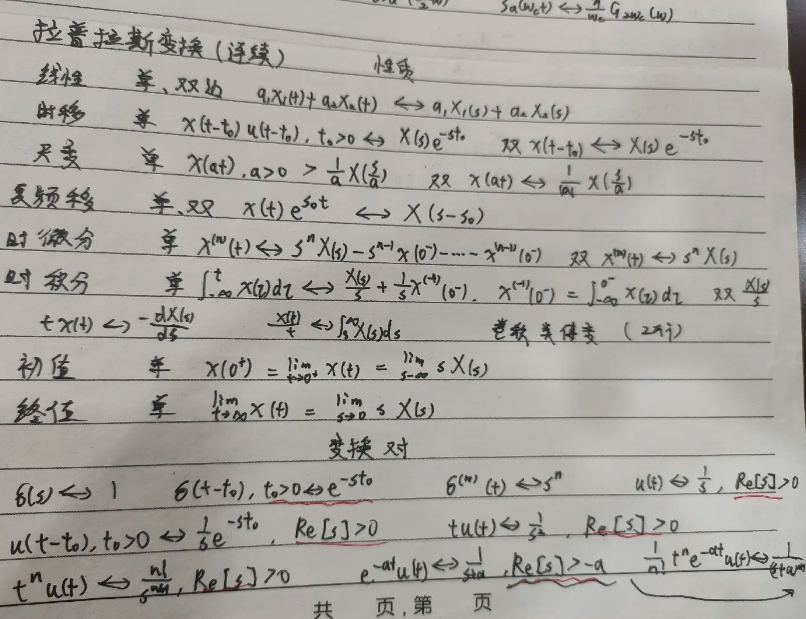 Sa(ω_c t) ↔ π/ω_c G_{2ω_c}(ω)
拉普拉斯变换(连续) 性质
线性 单、双边 a₁x₁(t)+a₂x₂(t) ↔ a₁X₁(s)+a₂X₂(s)
时移 单 x(t-t₀)u(t-t₀), t₀>0 ↔ X(s)e^{-st₀} 双 x(t-t₀) ↔ X(s)e^{-st₀}
尺变 单 x(at), a>0 > 1/a X(s/a) 双 x(at) ↔ 1/|a| X(s/a)
复频移 单、双 x(t)e^{s₀t} ↔ X(s-s₀)
时微分 单 x^{(n)}(t) ↔ s^n X(s) - s^{n-1}x(0⁻) - ---- x^{(n-1)}(0⁻) 双 x^{(n)}(t) ↔ s^n X(s)
时积分 单 ∫_{-∞}^{t} x(τ)dτ ↔ X(s)/s + 1/s x^{(-1)}(0⁻). x^{(-1)}(0⁻) = ∫_{-∞}^{0⁻} x(τ)dτ 双 X(s)/s
tx(t) ↔ -dX(s)/ds x(t)/t ↔ ∫_s^∞ X(s)ds 卷积 (2πj)
初值 单 x(0⁺) = lim_{t→0⁺} x(t) = lim_{s→∞} s X(s)
终值 单 lim_{t→∞} x(t) = lim_{s→0} s X(s)
变换对
δ(s) ↔ 1 δ(t-t₀), t₀>0 ↔ e^{-st₀} δ^{(n)}(t) ↔ s^n u(t) ↔ 1/s, Re[s]>0
u(t-t₀), t₀>0 ↔ 1/s e^{-st₀}, Re[s]>0 tu(t) ↔ 1/s², Re[s]>0
t^n u(t) ↔ n!/s^{n+1}, Re[s]>0 e^{-at}u(t) ↔ 1/(s+a), Re[s]>-a 1/n! t^n e^{-at}u(t) ↔ 1/(s+a)^{n+1}
共 页,第 页